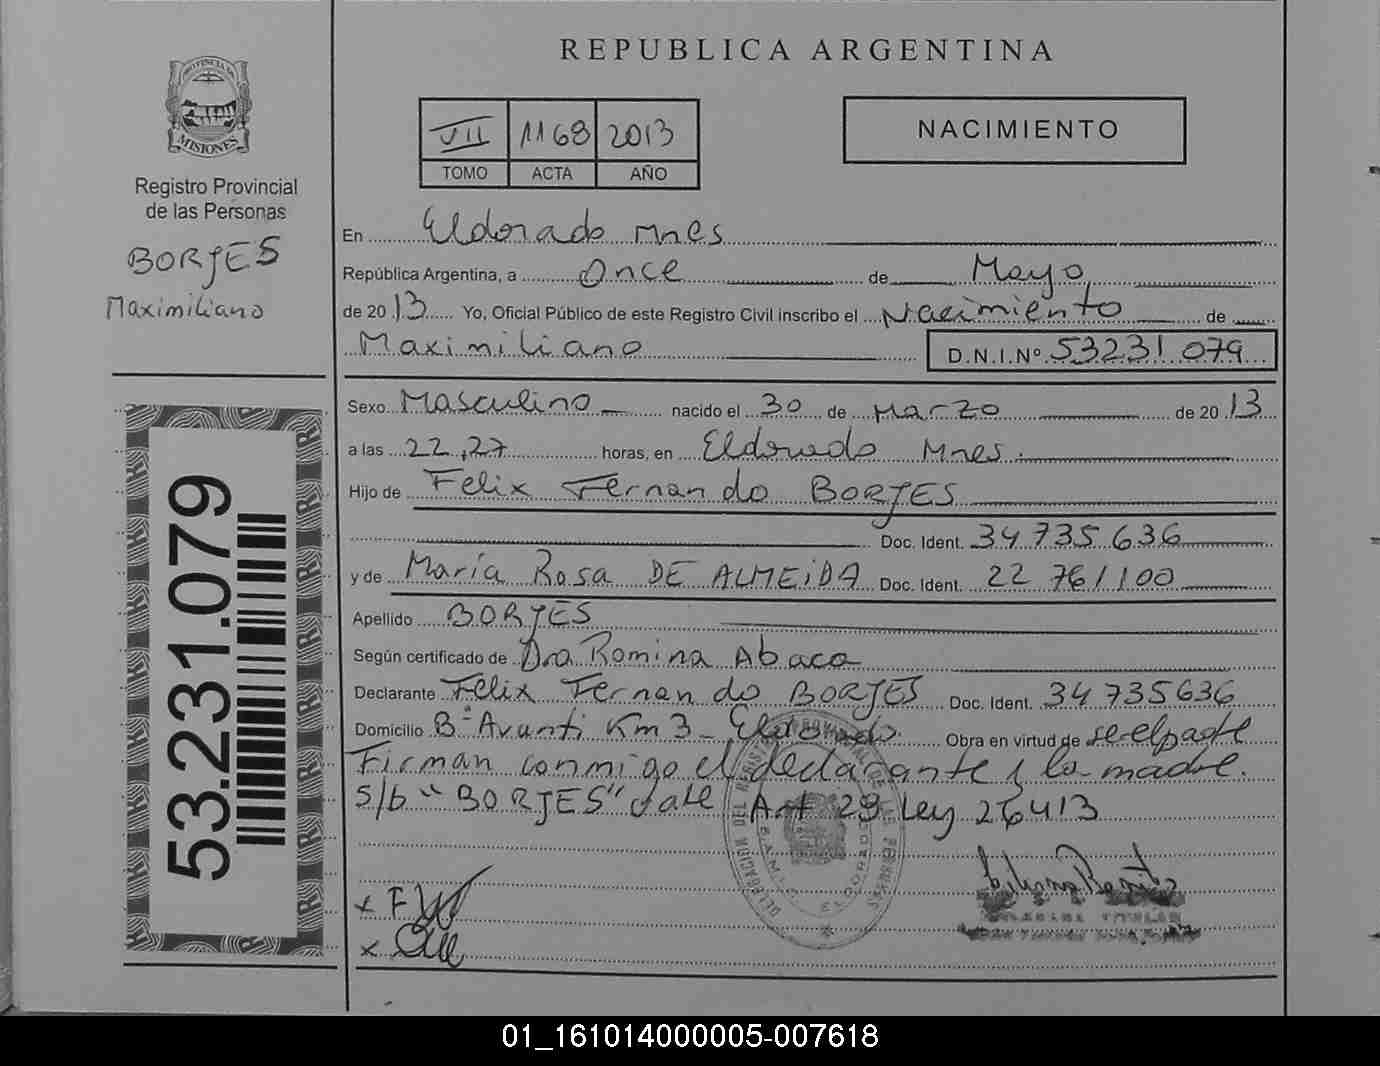 REPUBLICA ARGENTINA
PROVINCIA DE
MISIONES
Registro Provincial
de las Personas
BORJES
Maximiliano
53.231.079
VII 1168 2013
TOMO ACTA AÑO
NACIMIENTO
En Eldorado Mnes
República Argentina, a Once de Mayo
de 2013 Yo, Oficial Público de este Registro Civil inscribo el Nacimiento de
Maximiliano D.N.I.Nº 53231079
Sexo Masculino nacido el 30 de Marzo de 2013
a las 22,27 horas, en Eldorado Mnes.
Hijo de Felix Fernando BORJES
Doc. Ident. 34735636
y de María Rosa DE ALMEIDA Doc. Ident. 22 761100
Apellido BORJES
Según certificado de Dra Romina Abaca
Declarante Felix Fernando BORJES Doc. Ident. 34735636
Domicilio Bº Avanti Km 3 - Eldorado Obra en virtud de
Firman conmigo el declarante y la madre.
s/b "BORJES" vale Art 29 Ley 26413
DELEGACION DEL REGISTRO PROVINCIAL DE LAS PERSONAS
S.A.M.I.C.
ELDORADO
x
x
TITULAR
01_161014000005-007618